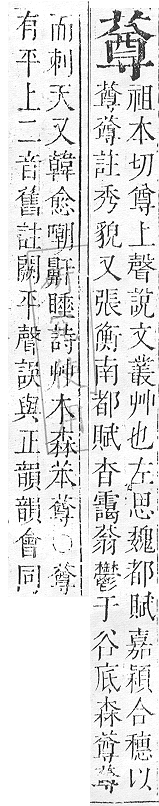 蓴
祖本切尊上聲說文叢艸也左思魏都賦嘉穎合穗以
蓴蓴註秀貌又張衡南都賦杳藹蓊鬱于谷底森蓴蓴
而刺天又韓愈嘲鼾睡詩艸木森苯蓴○蓴
有平上二音舊註闕平聲誤與正韻韻會同